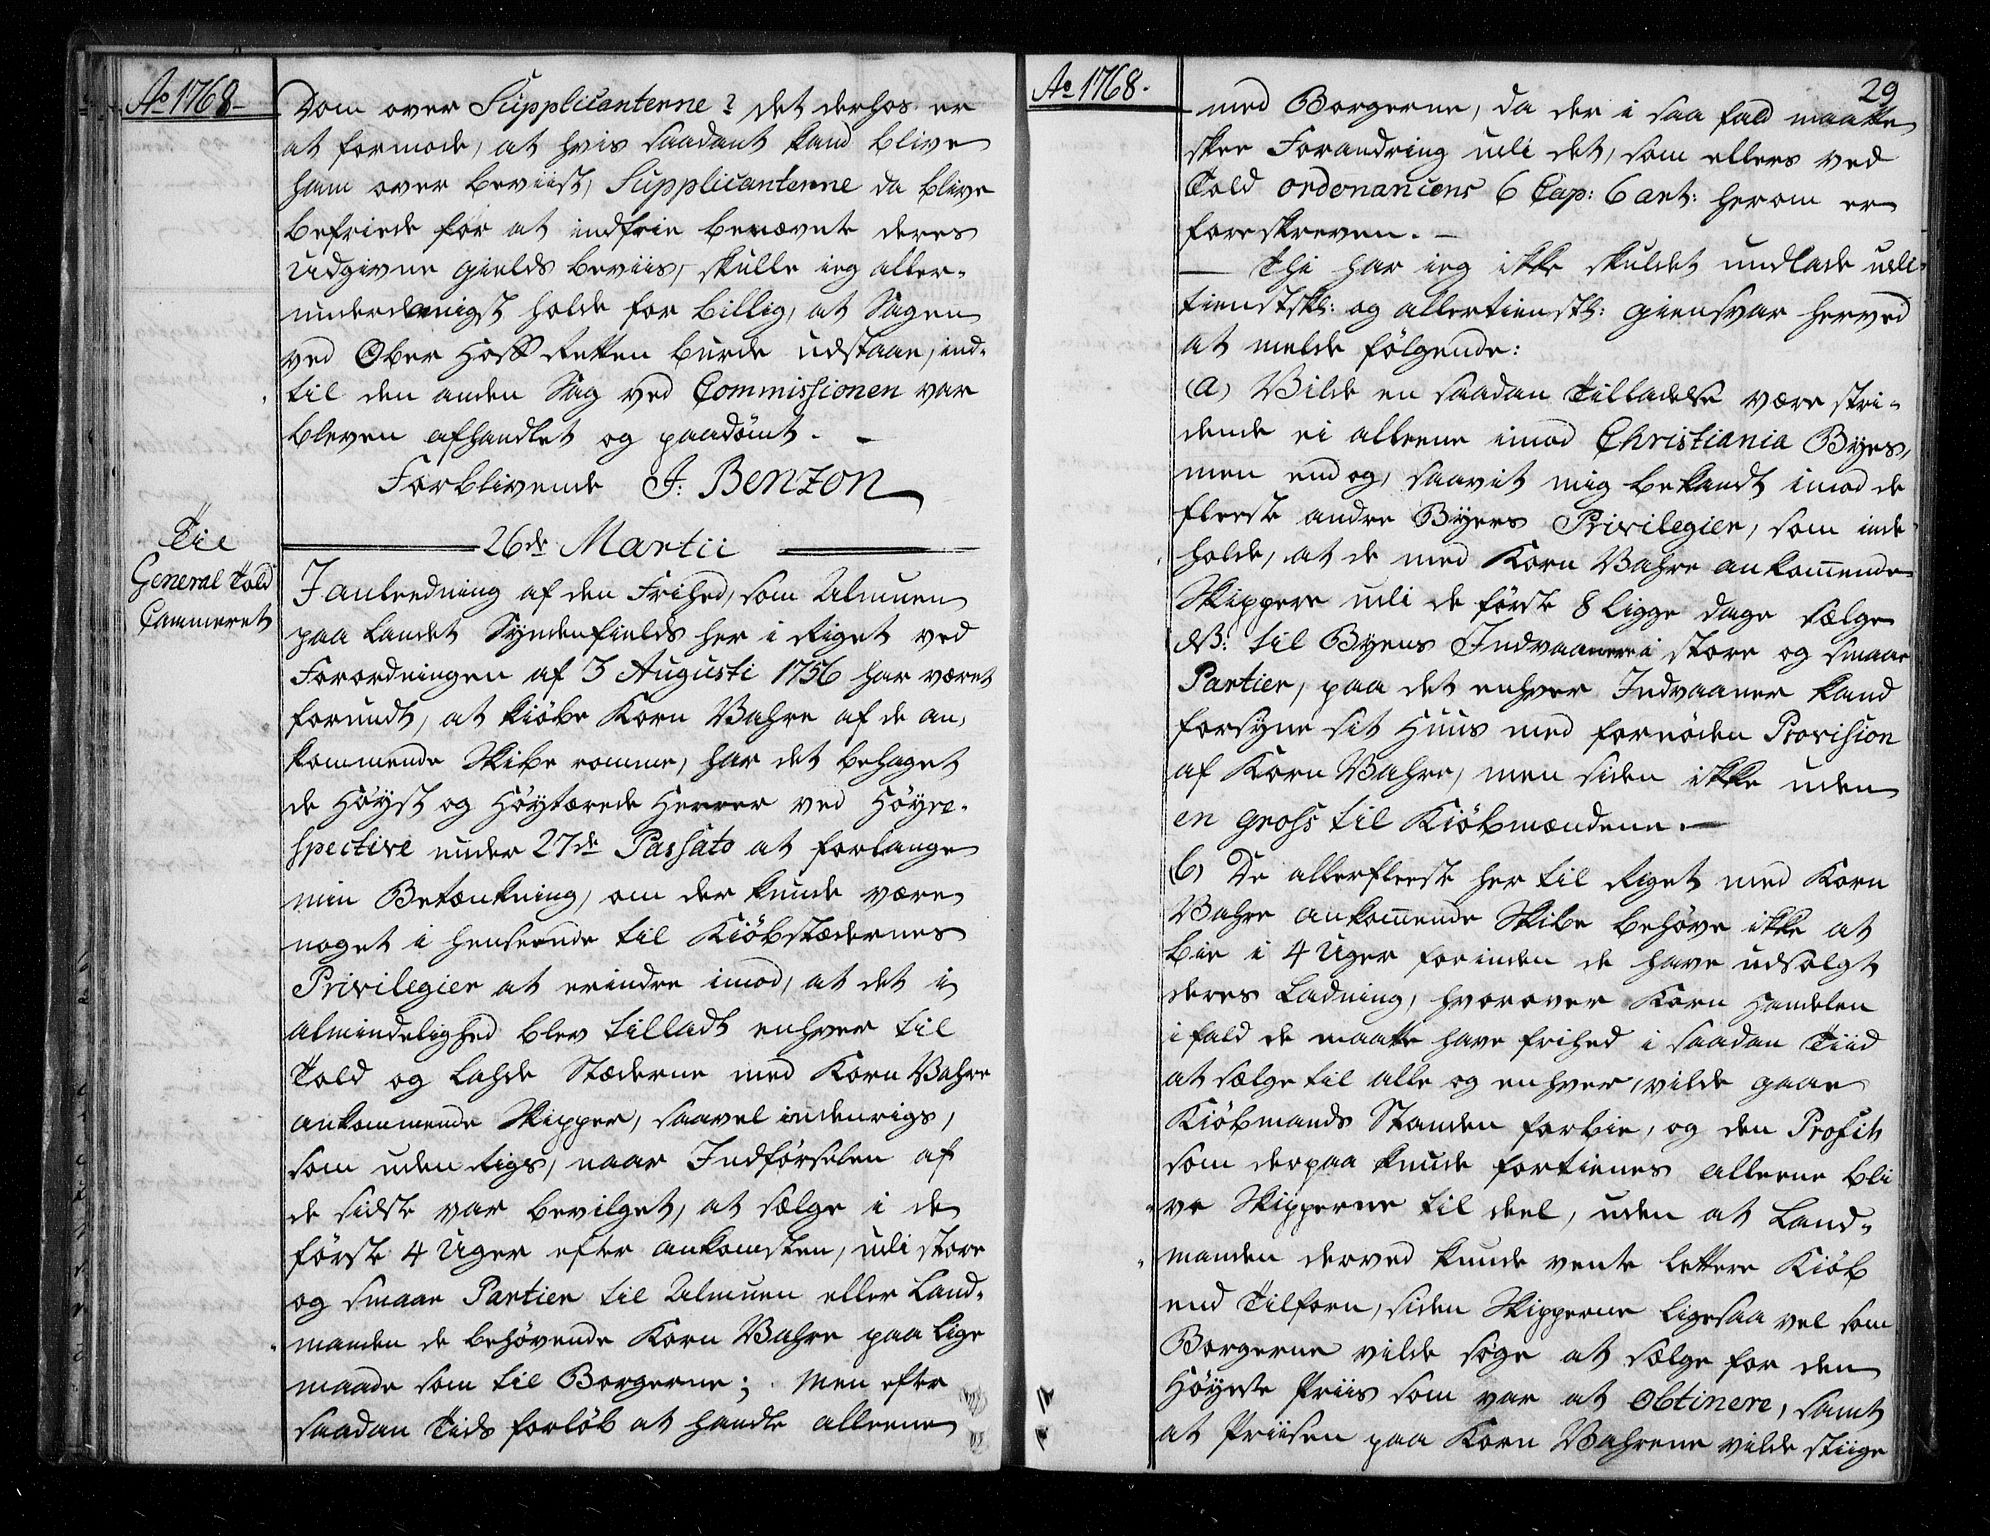 Ao 1768-
Dom over Supplicanterne? det derhos er
at formode, at hvis saadant kand blive
ham over beviist, Supplicanterne da blive
befriede for at indfrie benævnte deres
udgivne gields beviis, skulle ieg aller-
underdanigst holde for billig, at Sagen
ved Ober Hoff Retten burde udstaae, ind-
til den anden Sag ved Commissionen var
bleven afhandlet og paadømt. -
Forblivende J. Benzon
26de Martii
Til
General Told
Cammeret
I anleedning af den Frihed, som Almuen
paa Landet Syndenfields her i Riget ved
Forordningen af 3 Augusti 1756 har været
forundt, at kiøbe Korn Vahre af de an-
kommende Skibe romme, har det behaget
de Høyst og Høytærede Herrer ved Høyre-
spective under 27de Passato at forlange
min Betænkning, om der kunde være
noget i henseende til Kiøbstædernes
Privilegier at erindre imod, at det i
almindelighed blev tilladt enhver til
Told og Lahde Stæderne med Korn Vahre
ankommende Skipper, saavel indenrigs,
som uden Rigs, naar Indførselen af
de sidste var bevilget, at sælge i de
første 4 Uger efter ankomsten, udi store
og smaae Partier til Almuen eller Land-
manden de behøvende Korn Vahre paa lige
maade som til Borgerne; Men efter
saadan Tids forløb at handle alleene
Ao 1768.
29
med Borgerne, da der i saa fald maatte
skee Forandring udi det, som ellers ved
Told ordonancens 6 Cap: 6 art: herom er
foreskreven. -
Thi har ieg ikke skuldet undlade udi
tienstskl: og allertienstl: giensvar herved
at melde følgende:
(a) Vilde en saadan Tilladelse være stri-
dende ei alleene imod Christiania Byes,
men endog, saavit mig bekandt imod de
fleeste andre Byers Privilegier, som inde
holde, at de med Korn Vahre ankommende
Skippere udi de første 8 ligge dage sælge
NB: til Byens Indvaanere i store og smaae
Partier, paa det enhver Indvaaner kand
forsyne sit Huus med fornøden Provision
af Korn Vahre, men siden ikke uden
en gross til Kiøbmændene. -
(b) De allerfleeste her til Riget med Korn
Vahre ankommende Skibe behøve ikke at
bie i 4 Uger forinden de have udsolgt
deres Ladning, hvorover Korn Handelen
i fald de maatte have frihed i saadan Tiid
at sælge til alle og enhver, vilde gaae
Kiøbmands Standen forbie, og den Profit
som derpaa kunde fortienes alleene bli
ve Skipperne til deel, uden at Land-
manden derved kunde vente lettere Kiøb
end Tilforn, siden Skipperne ligesaa vel som
Borgerne vilde søge at sælge for den
Høyeste Priis som var at obtinere, samt
at Priisen paa Korn Vahrene vilde stiige